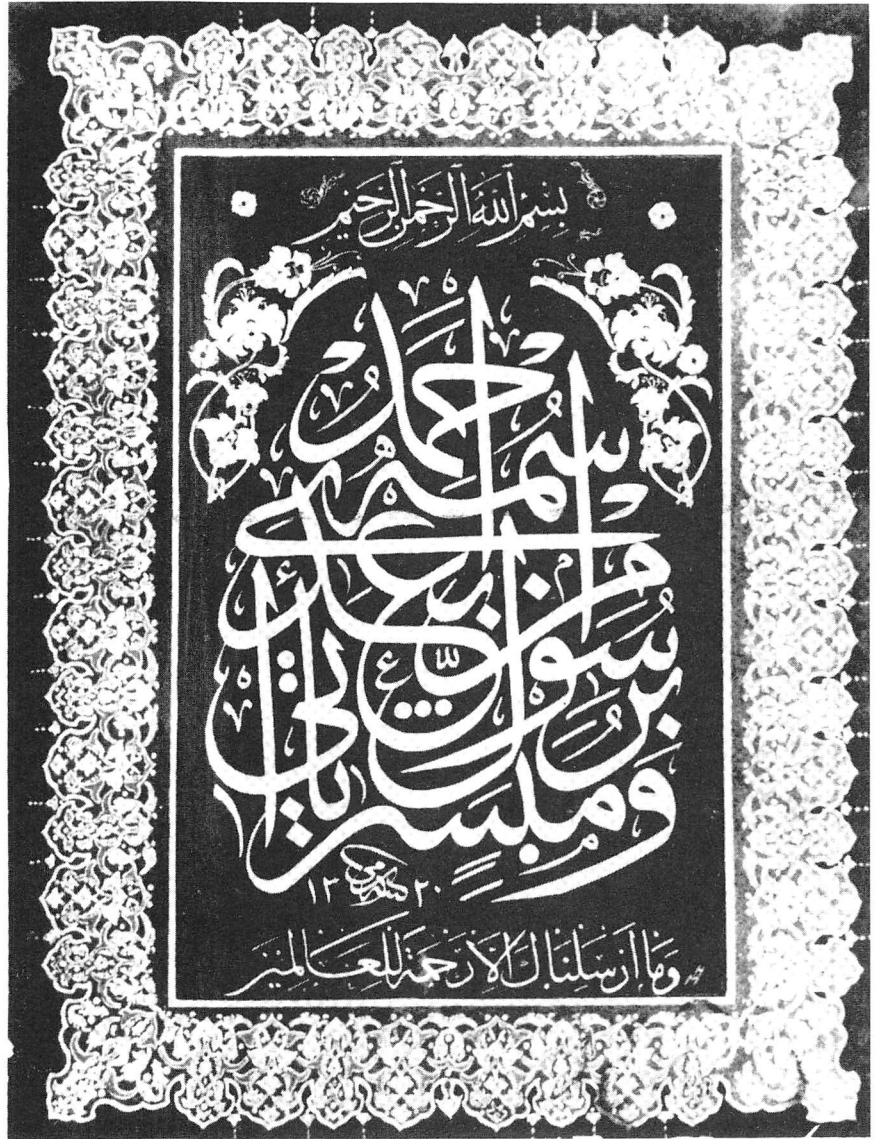 بِسْمِ ٱللَّهِ ٱلرَّحْمَنِ ٱلرَّحِيمِ
وَمُبَشِّرًا بِرَسُولٍ يَأْتِي مِنْ بَعْدِي اسْمُهُ أَحْمَدُ
١٣٢٠
وَمَا أَرْسَلْنَاكَ إِلَّا رَحْمَةً لِلْعَالَمِينَ